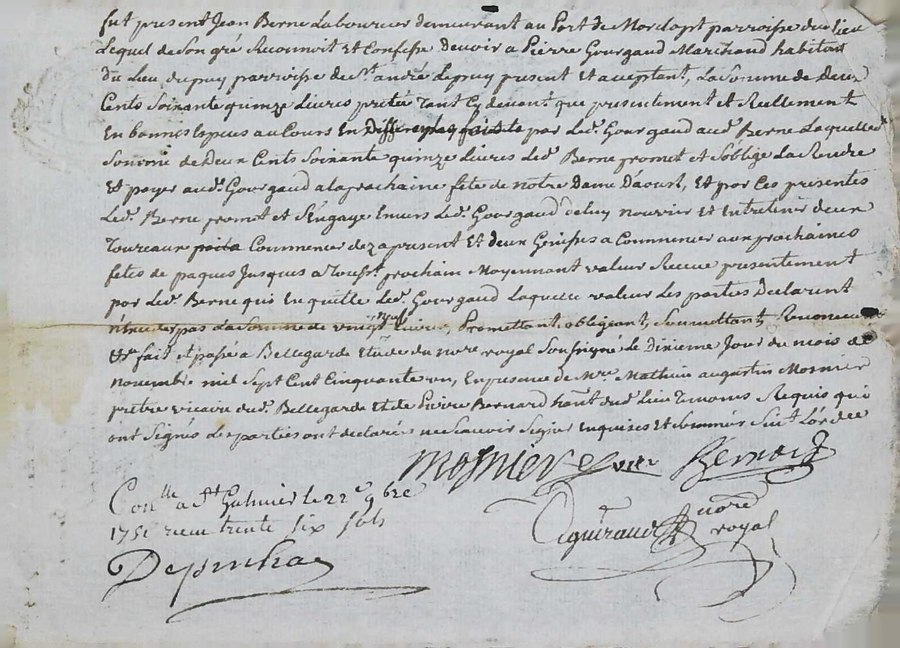 fut présent Jean Berne Laboureur demeurant au Port de Marclopt parroisse dud lieu
Lequel de Son gré Reconnoit Et Confesse Devoir a Pierre Gourgaud Marchand habitan
Du Lieu dupuy parroisse de St. andré Lepuy present Et aceptant, La Somme de Deux
Cents Soixante quinze Livres pretée Tant Cy devant que presentement et Reellement
En bonnes Especes au Cours par Led. Gourgaud aud. Berne Laquelle
Somme de Deux Cents Soixante quinze Livres Led. Berne promet et s'oblige La Rendre
Et payer aud. Gourgaud a la prochaine fête de notre Dame Daoust, Et par Ces presentes
Led. Berne promet et s'Engage Envers Led. Gourgaud de luy nourrir Et Entretenir deux
Toureaux Commencer dez a present Et deux Genisses a Commencer aux prochaines
fetes de paques Jusques a Toussts. prochain Moyennant valeur Reçue presentement
par Led. Berne qui En quitte Led. Gourgaud Laquelle valeur Les parties Declarent
n'Exceder pas La Somme de vingt neuf Livres, Promettant, obligeant, Soumettant, Renonceant
fait et passé a Bellegarde Etude du nore. royal Soussigné Le Dixieme Jour du mois de
novembre mil Sept Cent Cinquante un, En presence de Mre. Mathieu augustin Mosnier
prêtre vicaire dud. Bellegarde Et de Pierre Bernard hant. dud. Lieu Temoins Requis qui
ont Signés Les parties ont declaré ne Scavoir Signer Enquises Et Sommés Suivt. L'ordce
Mosnier vic Bernard
Conlle a St Galmier le 22e 9bre
1751 reçu trente six sols
Aguiraud nore royal